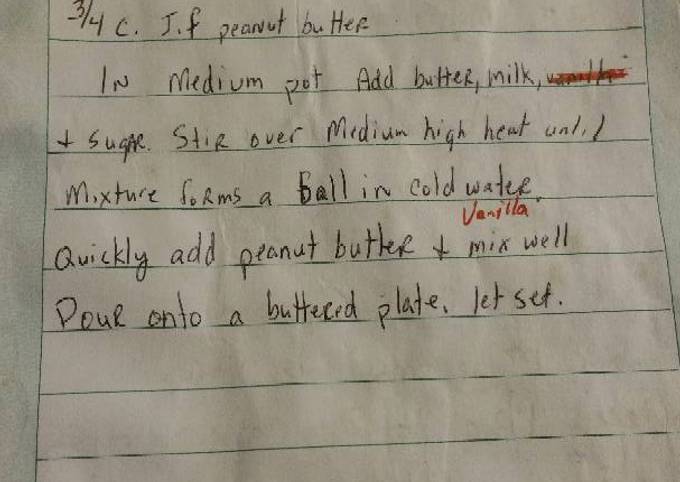 3/4 C. J.f peanut butter
In Medium pot Add butter, milk, vanilla
+ sugar. Stir over Medium high heat until
Mixture forms a Ball in cold water.
Vanilla
Quickly add peanut butter + mix well
Pour onto a buttered plate. let set.